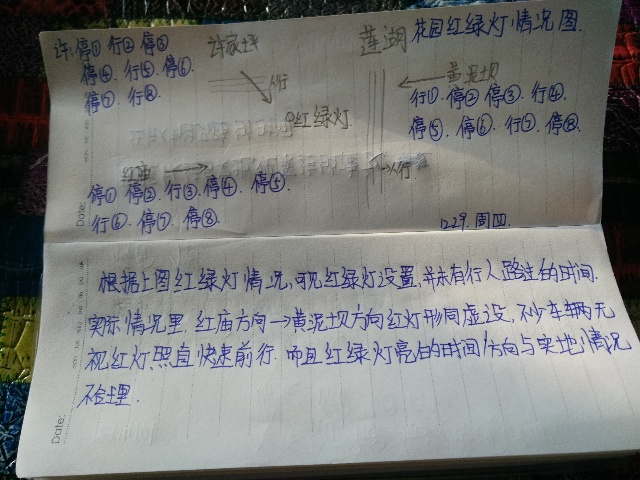 莲湖花园红绿灯情况图.
许,停① 行② 停③
停④. 行⑤ 停⑥.
停⑦. 行⑧.
许家坪
人行
红绿灯
黄泥坝
行①. 停② 停③. 行④.
停⑤. 停⑥. 行⑦. 停⑧.
红庙
人行
停① 停②. 行③. 停④. 停⑤
行⑥. 停⑦. 停⑧.
12.29. 周四.
根据上图红绿灯情况,可见红绿灯设置,并未有行人路过的时间.
实际情况里,红庙方向→黄泥坝方向红灯形同虚设,不少车辆无
视红灯,照直快速前行. 而且红绿灯亮的时间/方向与实地情况
不合理.
Date:
Date: